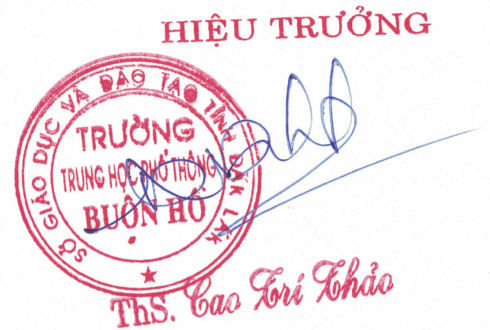 HIỆU TRƯỞNG
SỞ GIÁO DỤC VÀ ĐÀO TẠO TỈNH ĐẮK LẮK
TRƯỜNG
TRUNG HỌC PHỔ THÔNG
BUÔN HỒ
ThS. Cao Trí Thảo